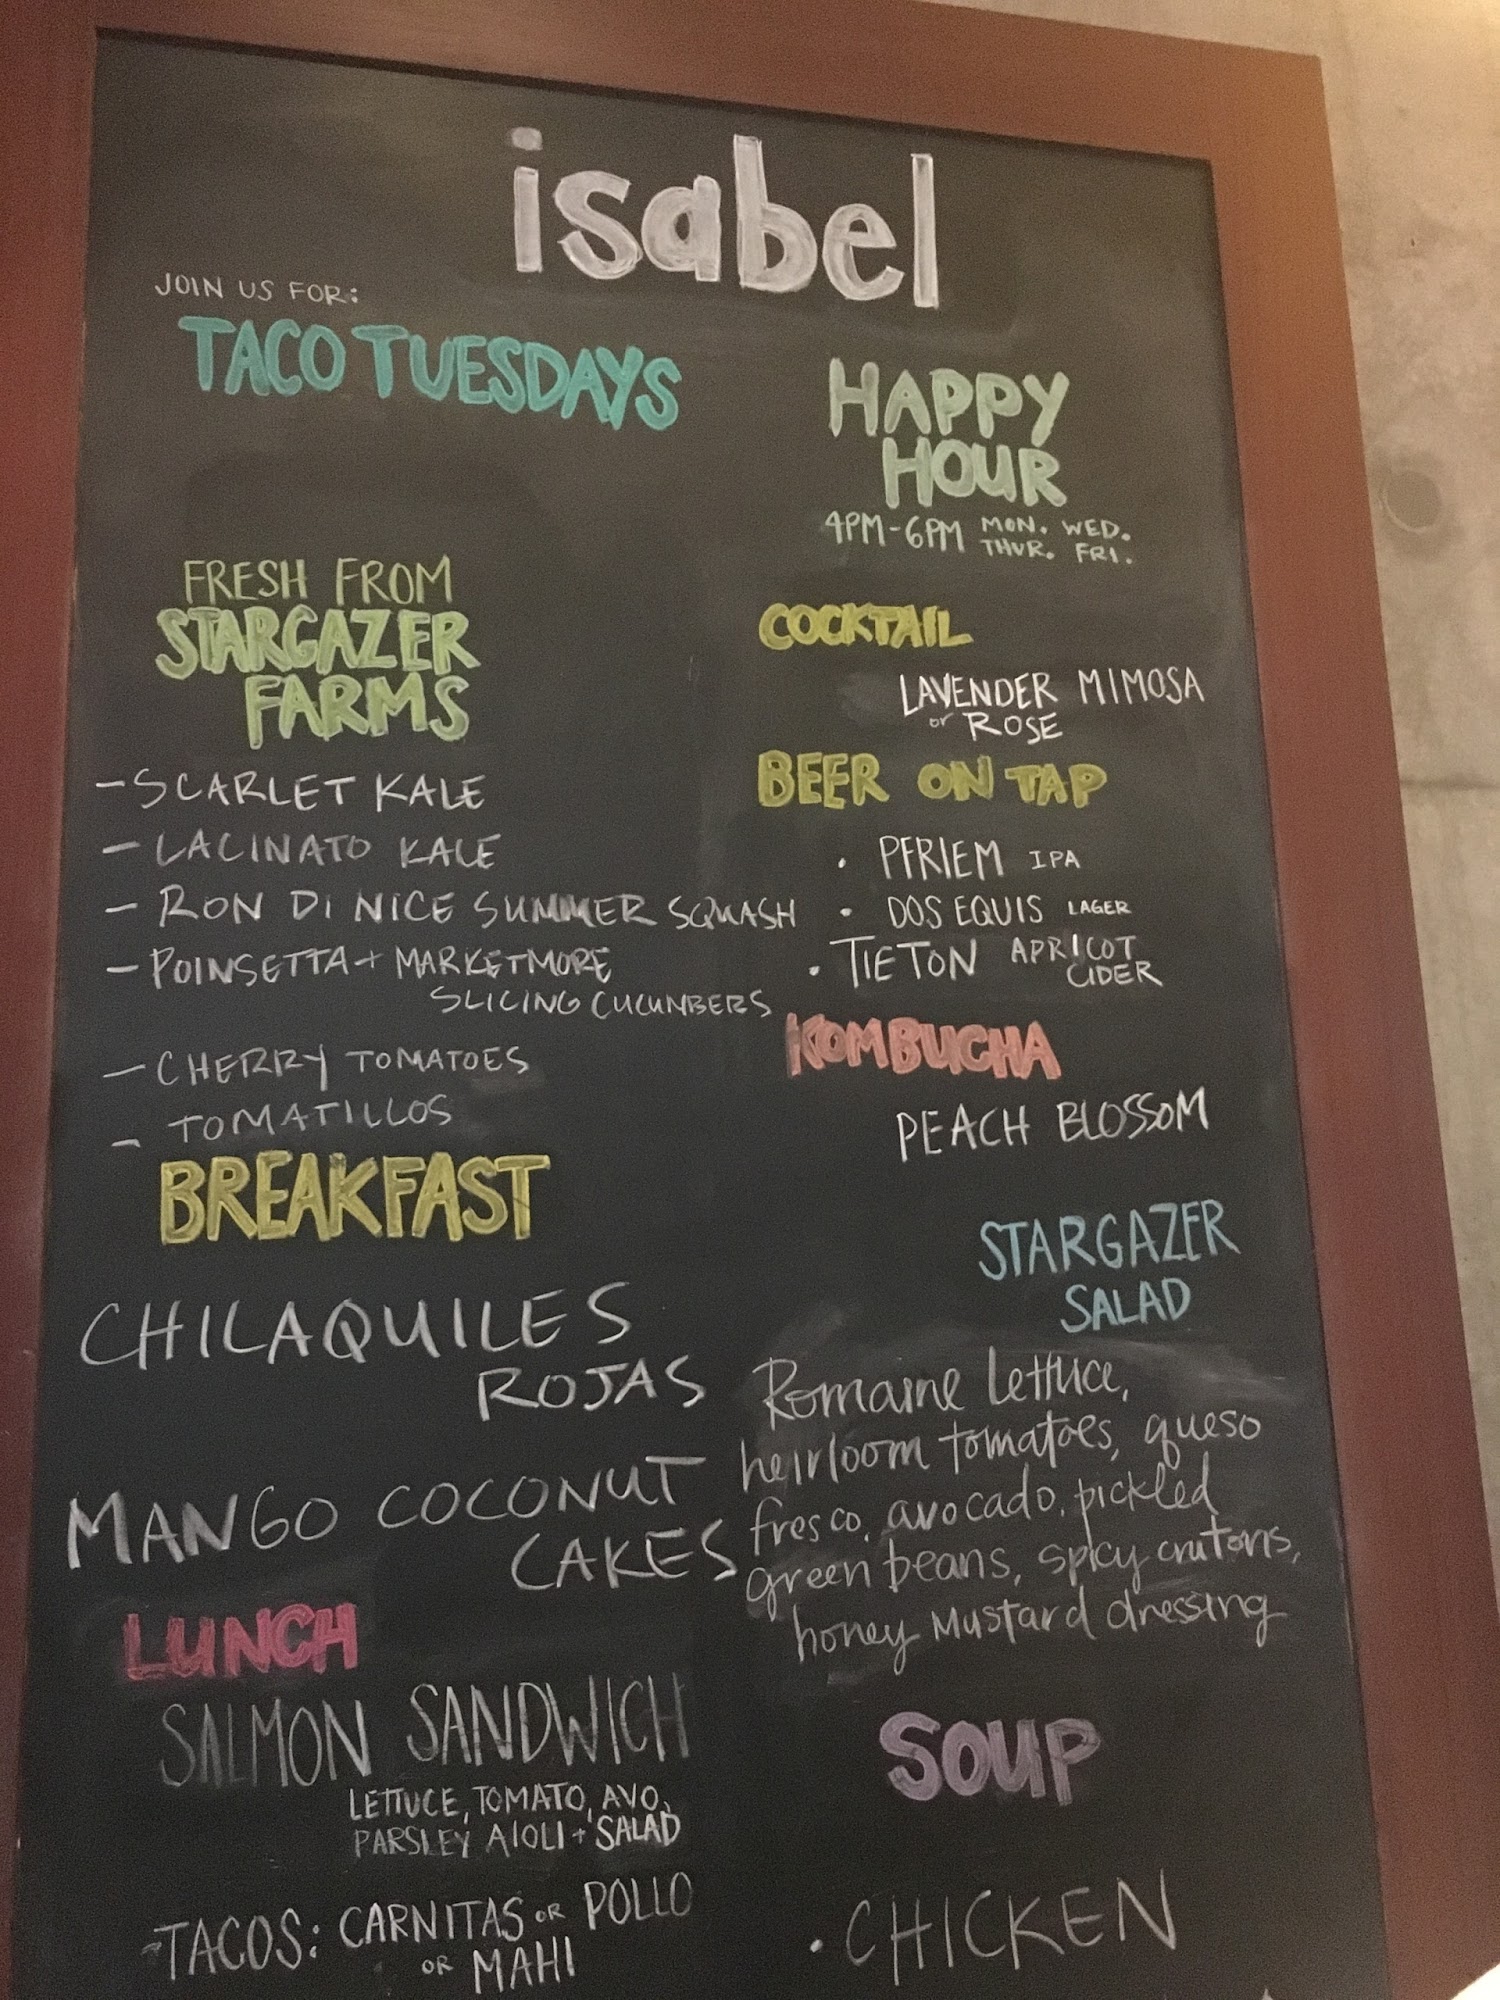 isabel
JOIN US FOR:
TACO TUESDAYS
FRESH FROM
STARGAZER
FARMS
- SCARLET KALE
- LACINATO KALE
- RON DI NICE SUMMER SQUASH
- POINSETTA + MARKETMORE
SLICING CUCUMBERS
- CHERRY TOMATOES
- TOMATILLOS
BREAKFAST
CHILAQUILES
ROJAS
MANGO COCONUT
CAKES
LUNCH
SALMON SANDWICH
LETTUCE, TOMATO, AVO,
PARSLEY AIOLI + SALAD
-TACOS: CARNITAS OR POLLO
OR MAHI
HAPPY
HOUR
4PM-6PM MON. WED.
THUR. FRI.
COCKTAIL
LAVENDER MIMOSA
or ROSE
BEER ON TAP
• PFRIEM IPA
• DOS EQUIS LAGER
• TIETON APRICOT
CIDER
KOMBUCHA
PEACH BLOSSOM
STARGAZER
SALAD
Romaine Lettuce,
heirloom tomatoes, queso
fresco, avocado, pickled
green beans, spicy crutons,
honey mustard dressing
SOUP
• CHICKEN